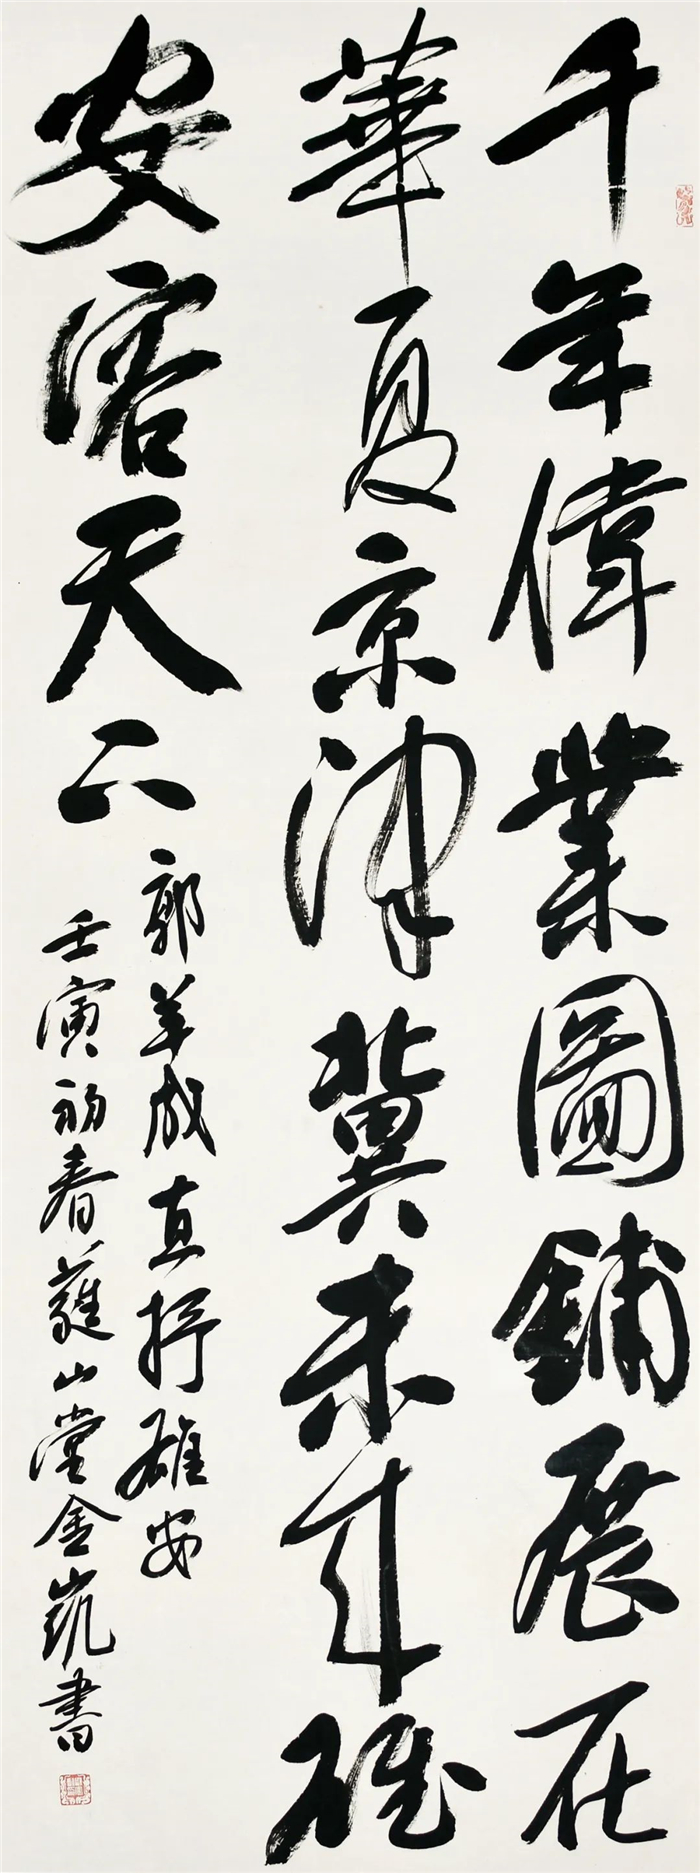 千年偉業圖鋪展在
華夏京津冀未来雄
安容天下
郭羊成直抒雄安
壬寅初春蘿山堂金凱書